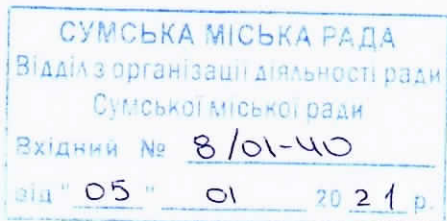 СУМСЬКА МІСЬКА РАДА
Відділ з організації діяльності ради
Сумської міської ради
Вхідний № 8/01-40
від " 05 " 01 20 21 р.